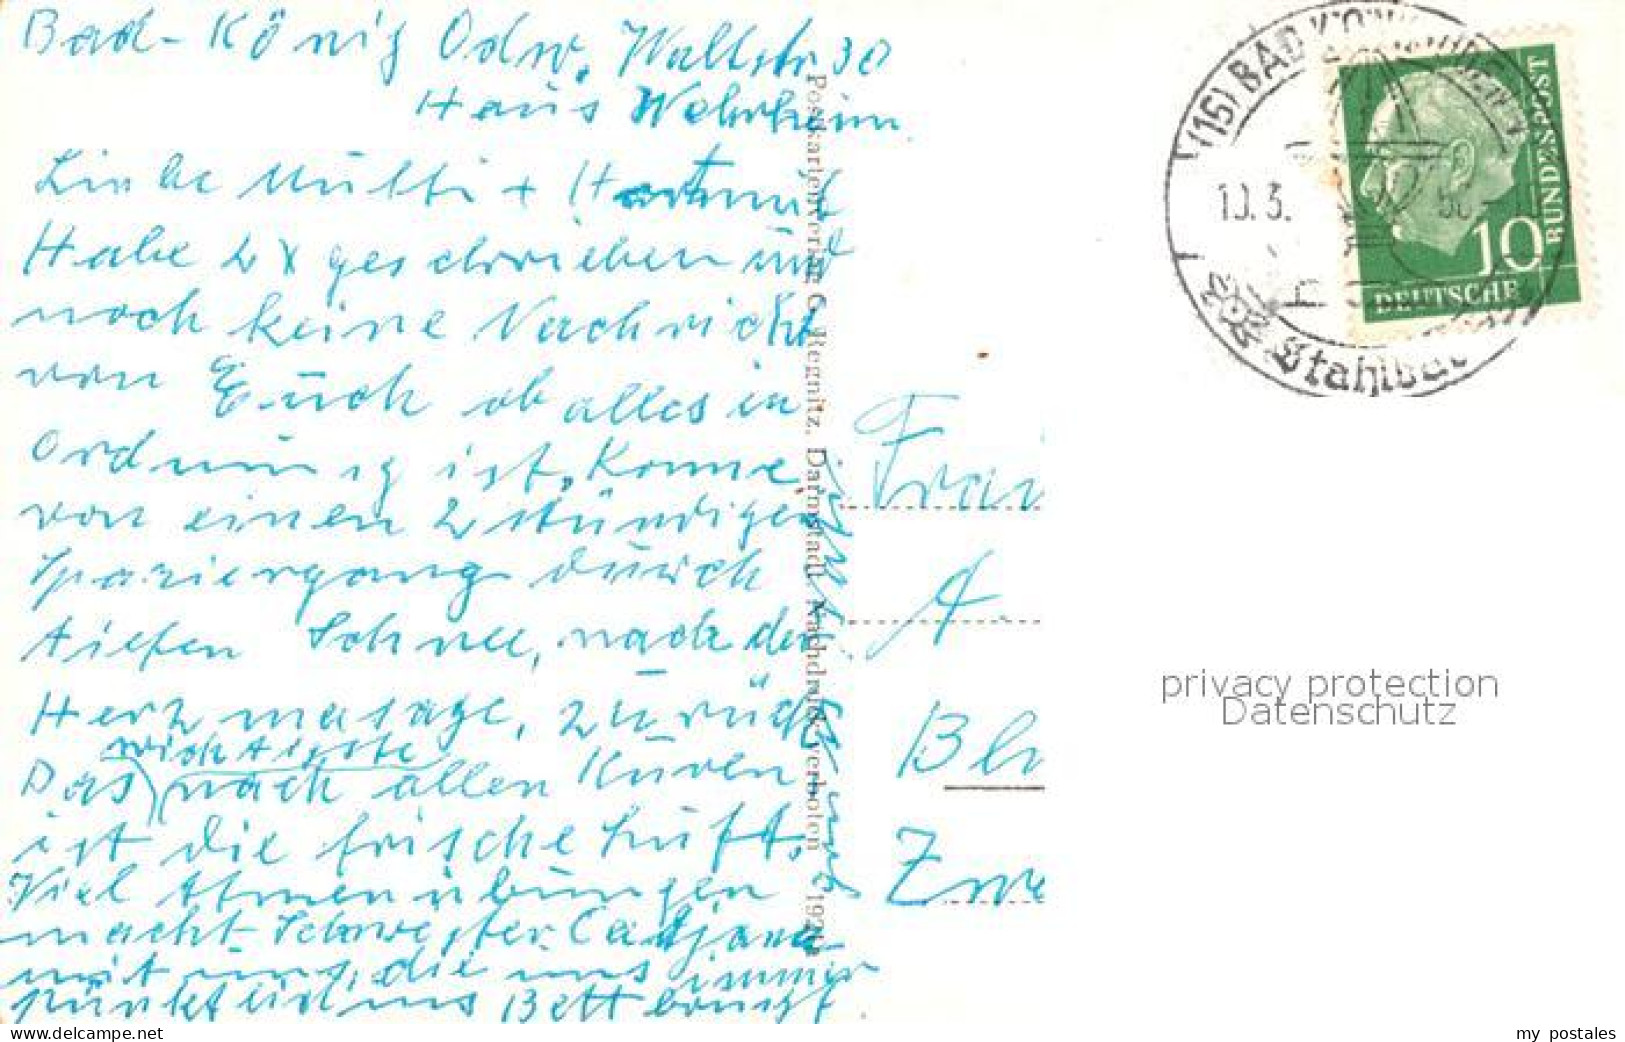 Bad-König Odw. Wallstr 30
Haus Wehrheim
Liebe Mutti + Hartmut
Habe 2x geschrieben und
noch keine Nachricht
von Euch ob alles in
Ordnung ist. Komme
von einen 2 stündigen
Spaziergang durch
tiefen Schnee, nach der
Herzmasage, zurück
wichtigste
Das nach allen Kuren
ist die frische Luft.
Viel Atmenübungen
macht Schwester
mit uns, die uns immer
pünktlich ins Bett bringt
Postkartenverlag G. Regnitz, Darmstadt. Nachdruck verboten
Frau
A.
Bl
Zwe
(16) BAD KÖNIG
10.3.
Stahlbad
10
DEUTSCHE
BUNDESPOST
privacy protection
Datenschutz
www.delcampe.net
my_postales